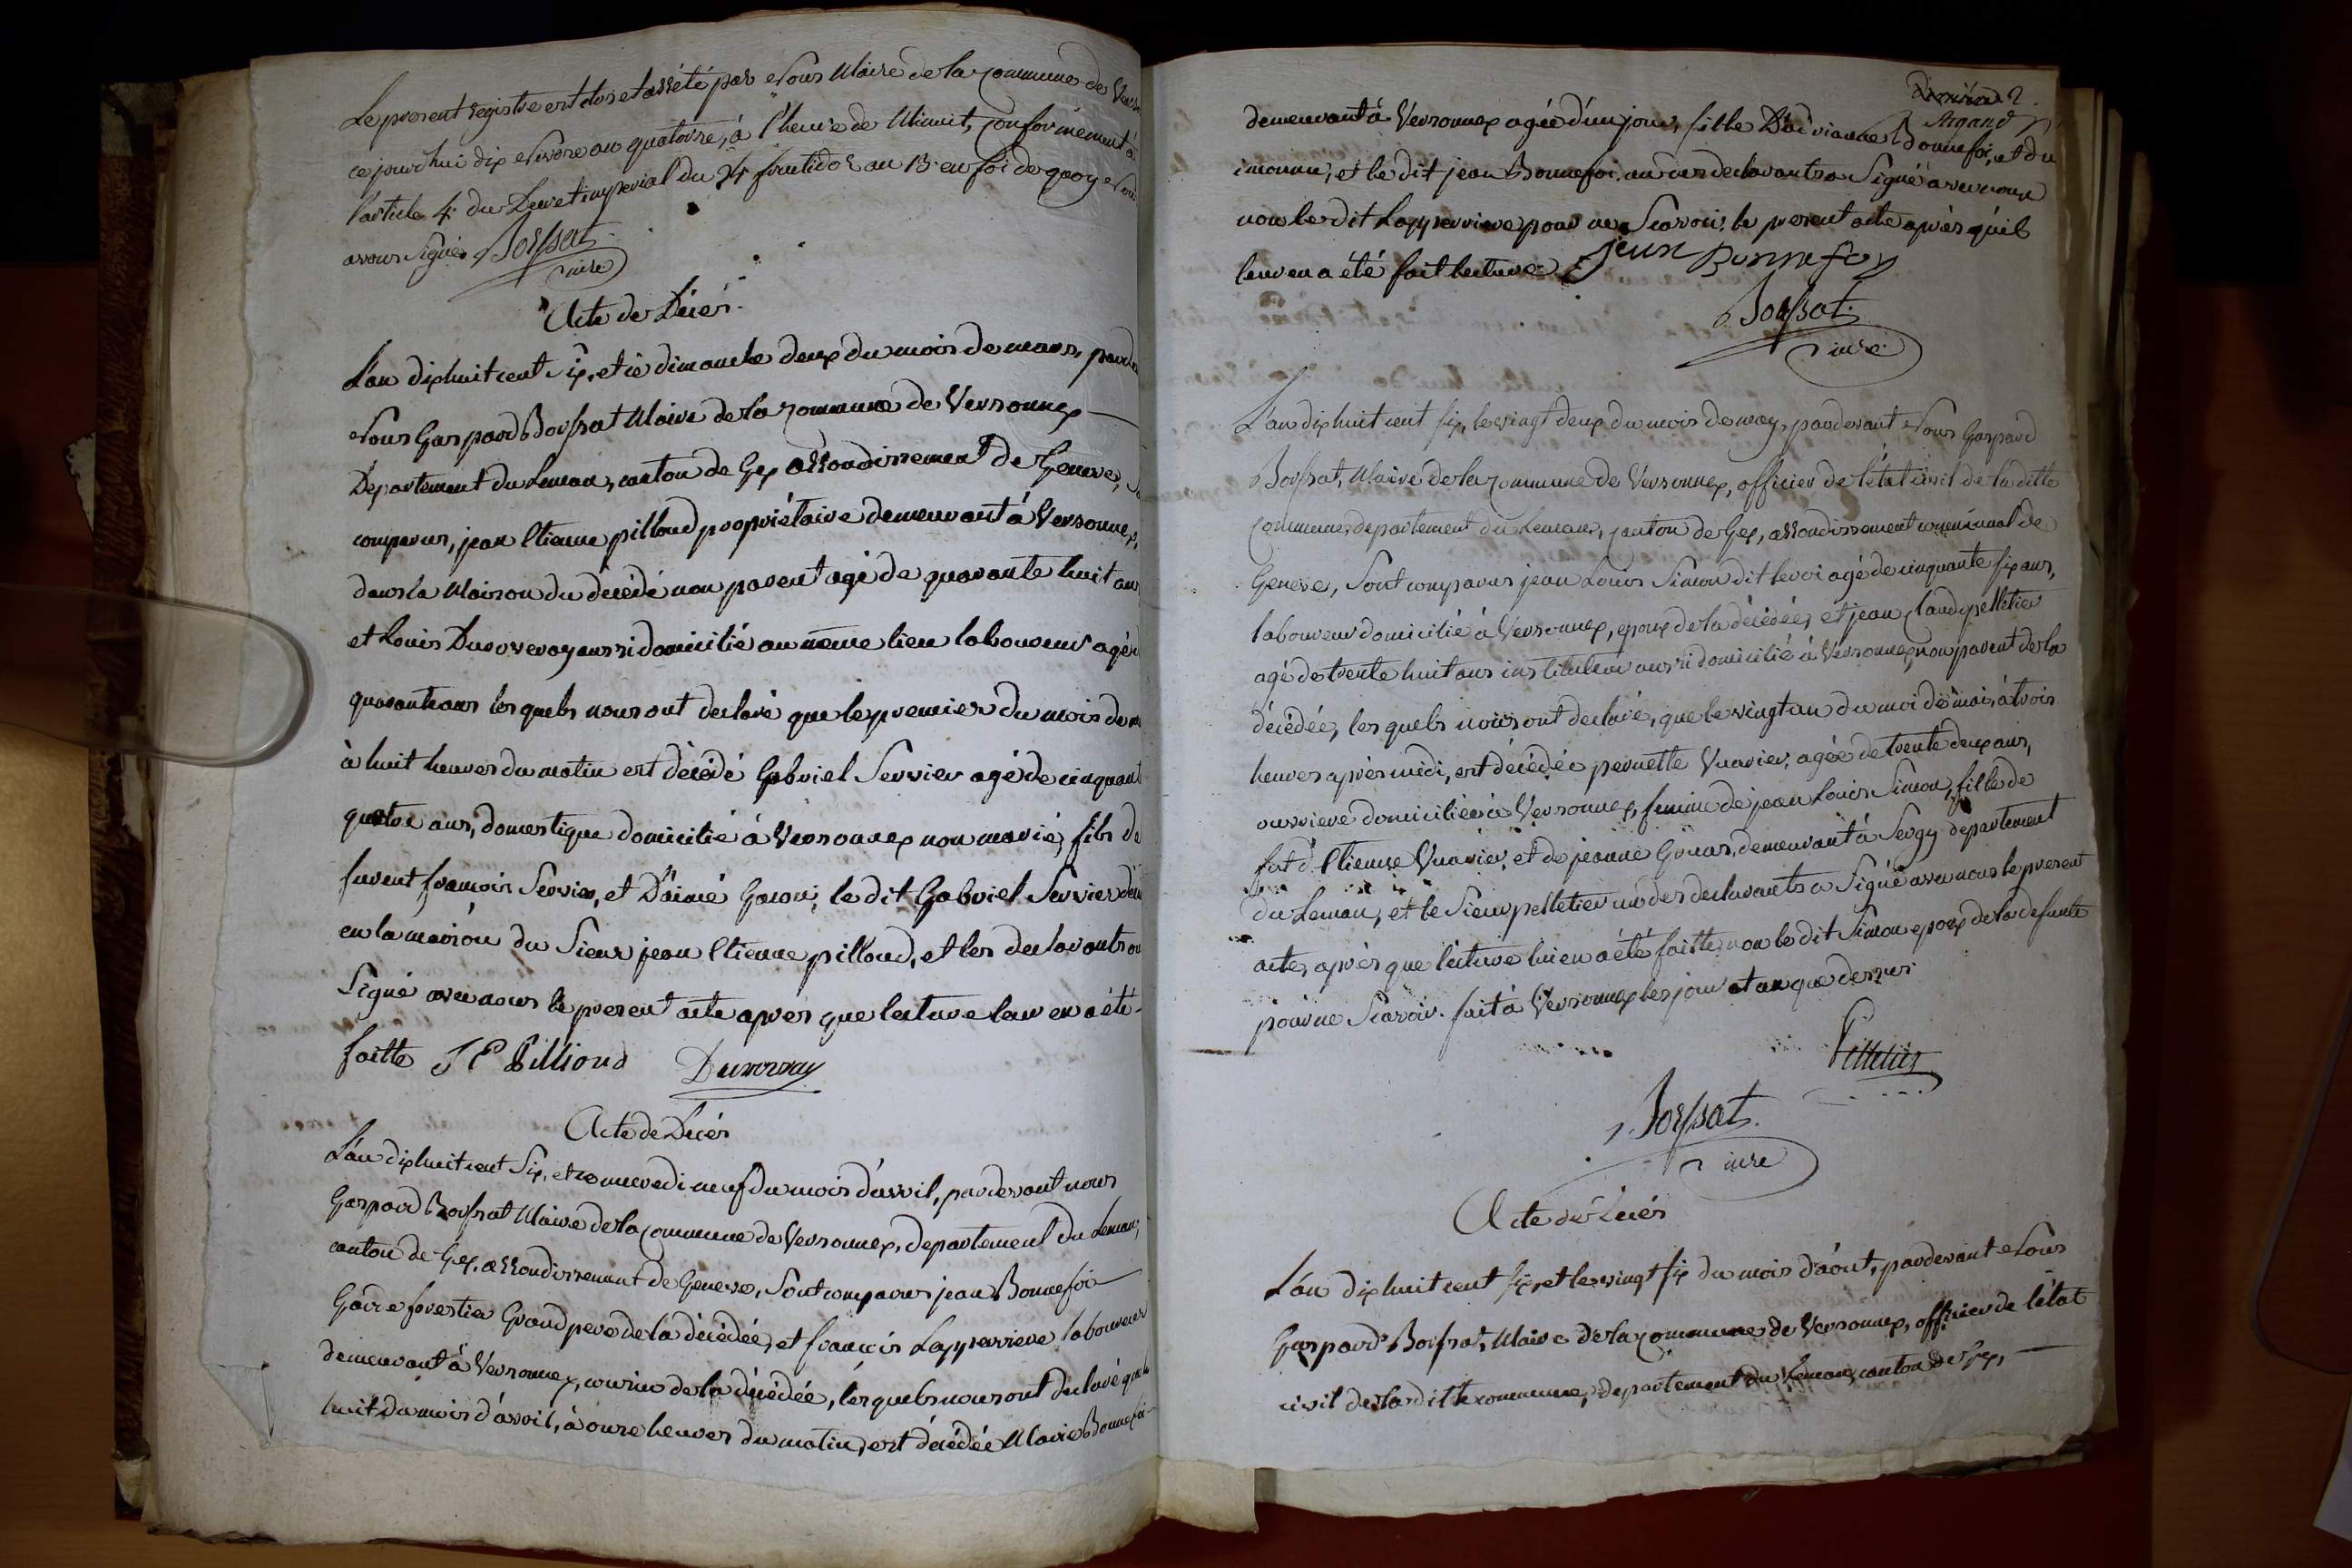 Le present registre est clos et arrêté par Nous Maire de la Commune de Vers
ce jourdhui dix Nivose an quatorze, à l'heure de Minuit, Conformément à
l'article 4 du Decret imperial du 24 fructidor an 13. en foi de quoy Nous
avons Signé Borssat
mire
Acte de Décés.
L'an dix huit cent Six, et le dimanche deux du mois de mars, pard
Nous Gaspard Borssat Maire de la Commune de Versonnex
Departement du Leman, canton de Gex arrondissement de Geneve, So
comparus, jean Etienne pilloud propriétaire demeurant à Versonnex,
dans la Maison du décédé non parent agé de quarante huit ans
et Louis Duvveray aussi domicilié au même lieu laboureur agé d
quarante ans lesquels nous ont declaré que le premier du mois de m
à huit heures du matin est décédé Gabriel Servier agé de cinquant
quatre ans, domestique domicilié à Versonnex non marié, fils de
furent françois Servier, et D'aimé, le dit Gabriel Servier dem
en la maison du Sieur jean Etienne pilloud, et les declarants on
Signé avec nous le present acte aprés que lecture leur en a été
faitte J E Pillioud Duvorray
Acte de Décés
L'an dix huit cent Six, et le mercredi neuf du mois d'avril, pardevant nous
Gaspard Borssat Maire de la Commune de Versonnex, departement du Leman,
canton de Gex, arrondissement de Geneve, Sont comparus jean Bonnefoi
Garde forestier Grand pere de la décédée, et françois Lapperriere laboureur
demeurant à Versonnex, cousin de la décédée, lesquels nous ont declaré que le
huit du mois d'avril, à onze heures du matin, est décédée Marie Bonnefoi
2.
Argand
demeurant à Versonnex agée d'un jour, fille D'adrianne Bonnefoi, et du
inconnu, et le dit jean Bonnefoi, un des declarants a Signé avec nous
non le dit Lapperriere pour ne Scavoir, le present acte aprés qu'il
leur en a été fait lecture. jean Bonnefoy
Borssat.
mire
L'an dix huit cent six, le vingt deux du mois de may, pardevant Nous Gaspard
Borssat, Maire de la Commune de Versonnex, officier de l'état civil de la ditte
Commune, departement du Leman, Canton de Gex, arrondissement communal de
Geneve, Sont comparus jean Louis Simon dit le roi agé de cinquante six ans,
laboureur domicilié à Versonnex, epoux de la décédée, et jean Claude pelletier
agé de trente huit ans instituteur aussi domicilié à Versonnex, non parent de la
décédée, lesquels nous ont declaré, que le vingt un du moi de mai, à trois
heures aprés midi, est décédée pernette Vuarier, agée de trente deux ans,
ouvriere domiciliée à Versonnex, femme de jean Louis Simon, fille de
fut d'Etienne Vuarier, et de jeanne Gruas, demeurant à Sergy departement
du Leman, et le Sieur pelletier un des declarants a Signé avec nous le present
acte, aprés que lecture lui en a été faitte, non le dit Simon epoux de la defunte
pour ne Scavoir. fait à Versonnex les jour et an que dessus
Pelletier
Borssat.
mire
Acte de Décés
L'an dix huit cent six, et le vingt six du mois d'aout, pardevant Nous
Gaspard Borssat, Maire de la Commune de Versonnex, officier de l'état
civil de la ditte commune, departement du Leman, canton de Gex,